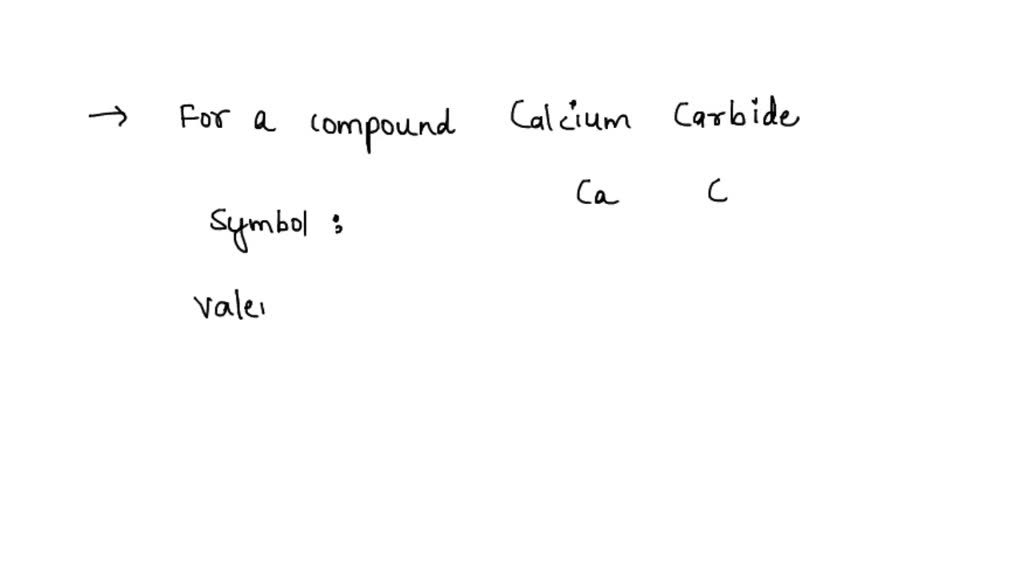 → For a compound Calcium Carbide
Ca C
Symbol :
Vale